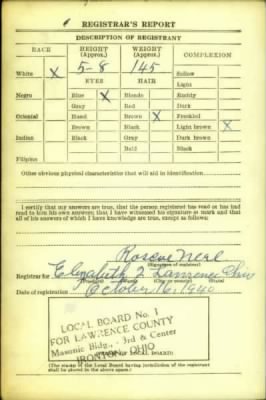 REGISTRAR'S REPORT
DESCRIPTION OF REGISTRANT
RACE HEIGHT (Approx.) WEIGHT (Approx.) COMPLEXION
5-8 145
White X Sallow
EYES HAIR Light
Negro Blue X Blonde Ruddy
Gray Red Dark
Oriental Hazel Brown X Freckled
Brown Black Light brown X
Indian Black Gray Dark brown
Bald Black
Filipino
Other obvious physical characteristics that will aid in identification
I certify that my answers are true; that the person registered has read or has had
read to him his own answers; that I have witnessed his signature or mark and that
all of his answers of which I have knowledge are true, except as follows:
Roscoe Neal
(Signature of registrar)
Registrar for Elizabeth 2 Lawrence Ohio
(Precinct) (County) (State)
Date of registration October 16, 1940
LOCAL BOARD No. 1
FOR LAWRENCE COUNTY
Masonic Bldg., 3rd & Center
IRONTON, OHIO
(The stamp of the Local Board having jurisdiction of the registrant
shall be placed in the above space.)